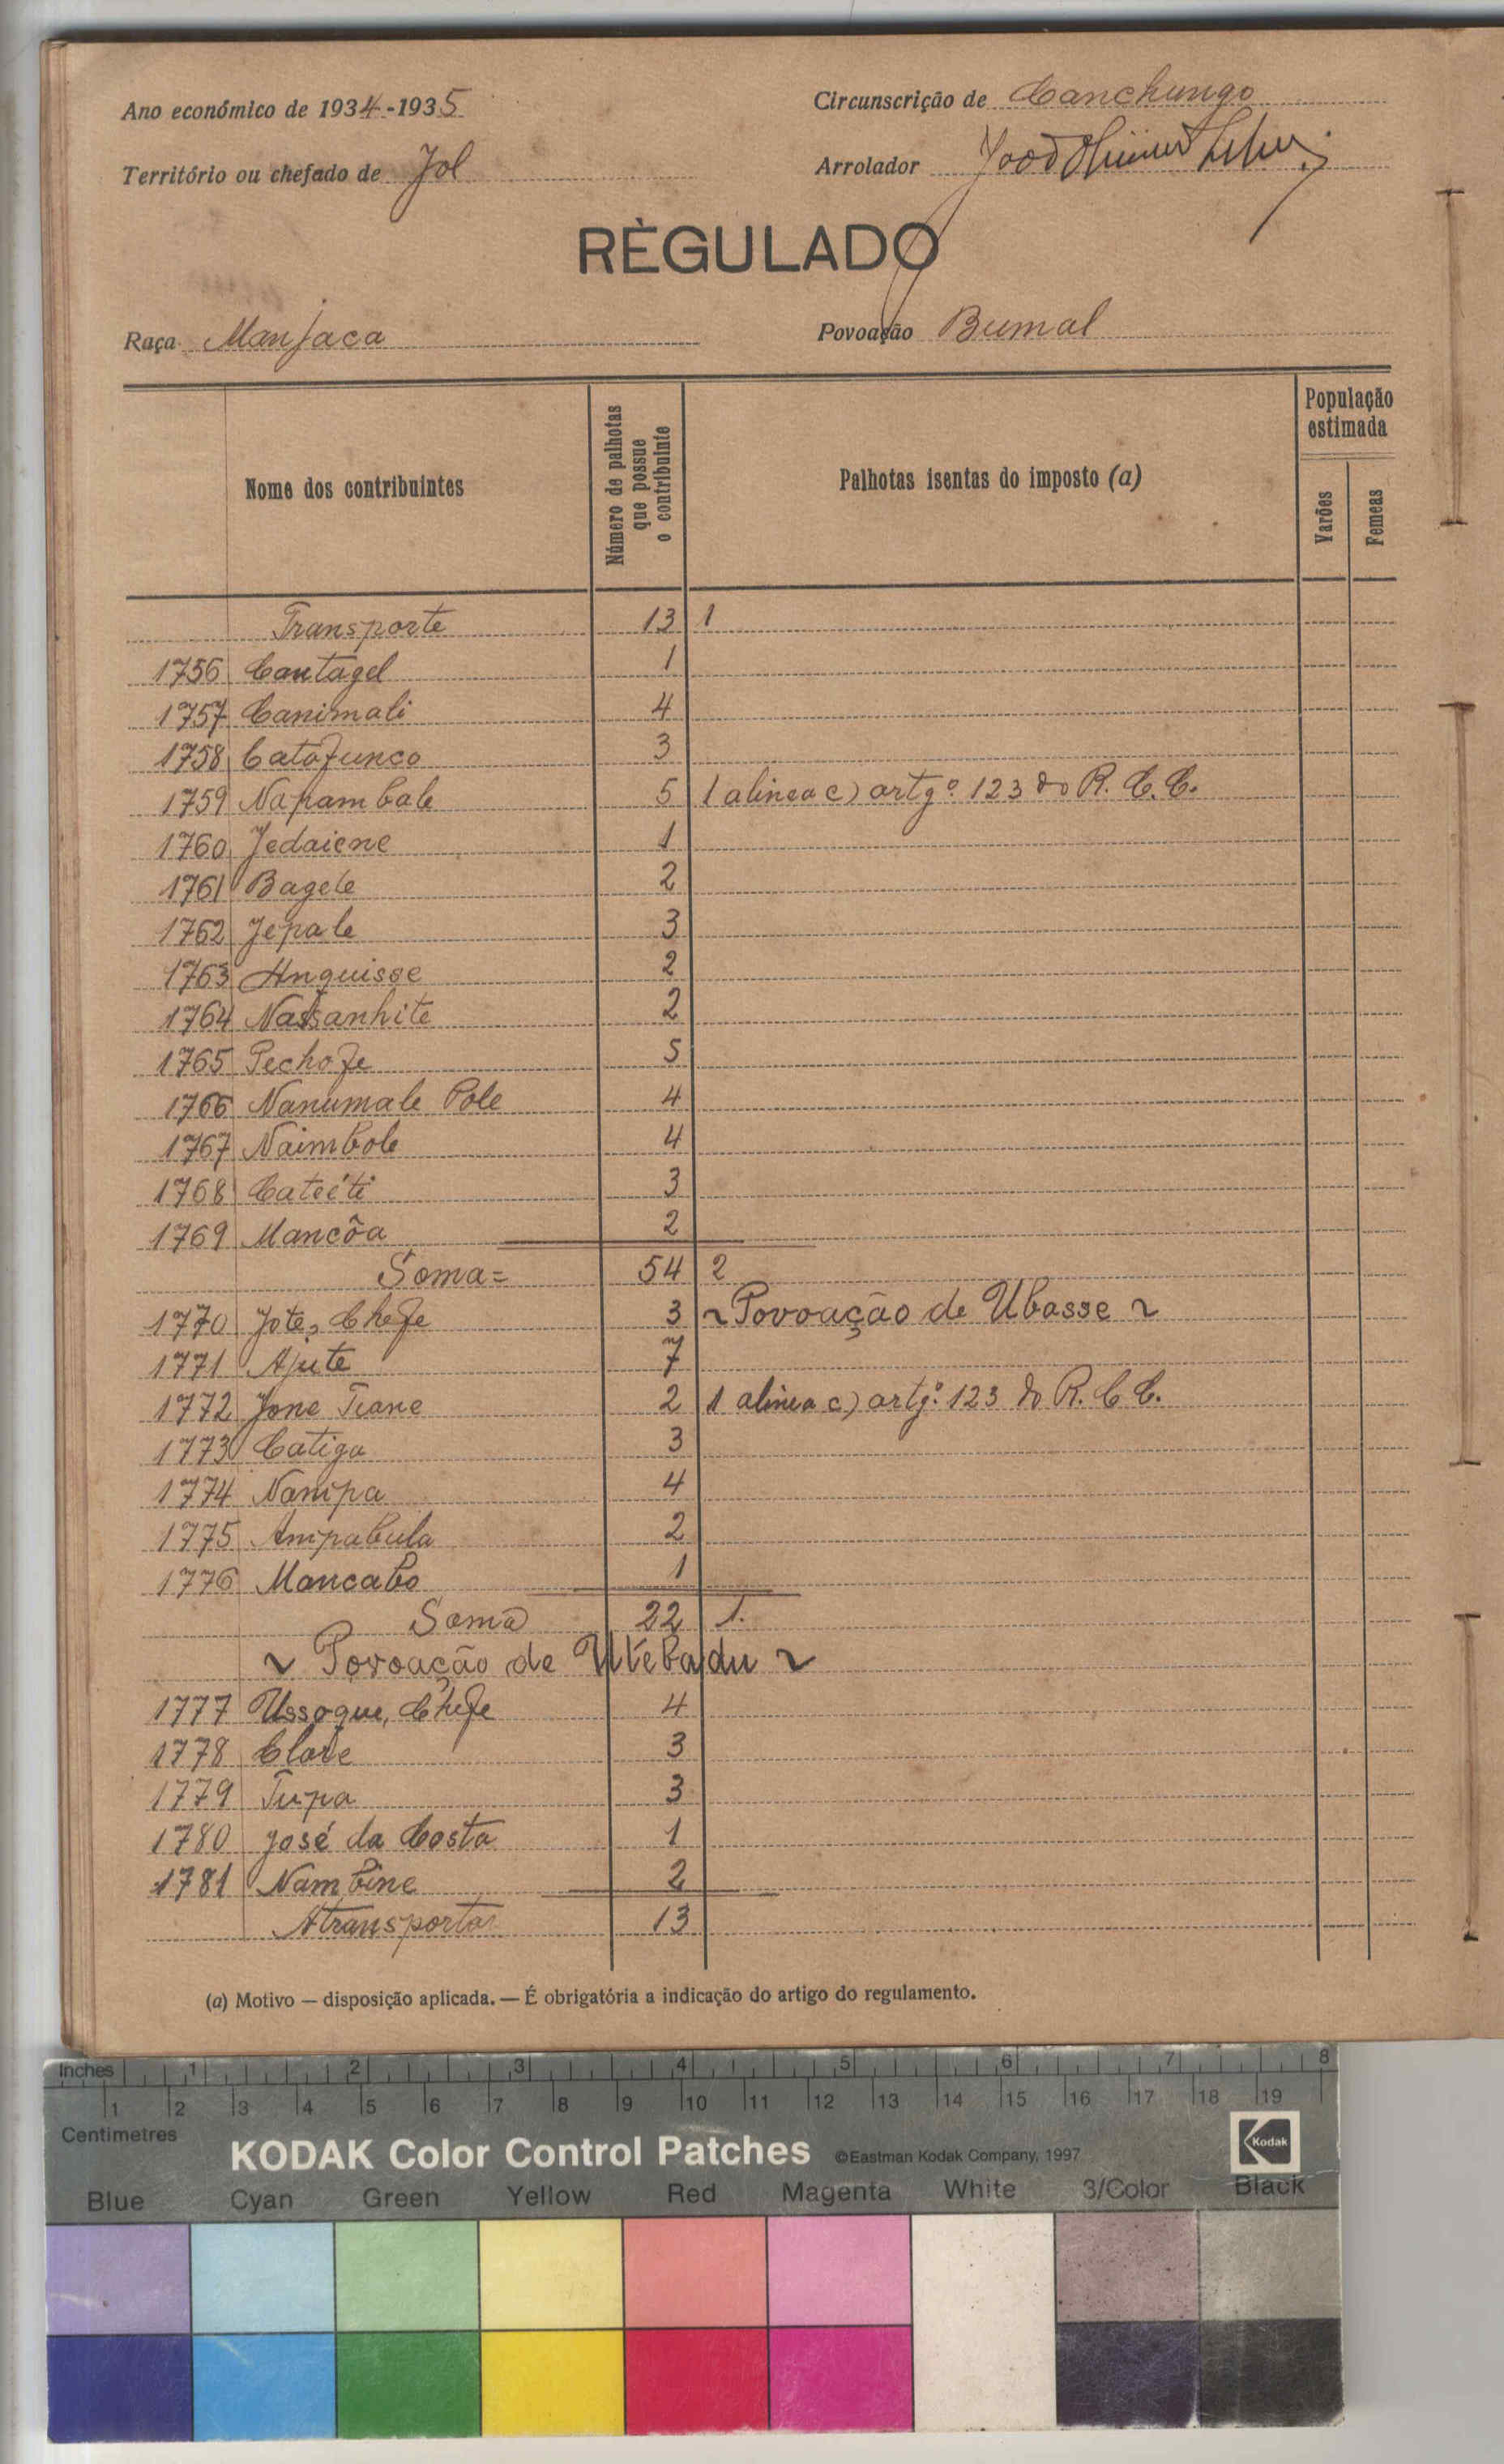 Ano económico de 1934-1935
Circunscrição de Canchungo
Território ou chefado de Jol
Arrolador João
RÈGULADO
Raça Manjaca
Povoação Bumal
Nome dos contribuintes
Número de palhotas que possue o contribuinte
Palhotas isentas do imposto (a)
População estimada
Varões
Femeas
Transporte 13 1
1756 Cantagel 1
1757 Canimali 4
1758 Catofunco 3
1759 Napambale 5 1 alinea c) artgº 123 do R. C. C.
1760 Jedaiene 1
1761 Bagele 2
1762 Jepale 3
1763 Anquisse 2
1764 Nassanhite 2
1765 Pechofe 5
1766 Nanumale Pole 4
1767 Naimbole 4
1768 Cateéti 3
1769 Mancôa 2
Soma= 54 2
1770 Jote, Chefe 3 ~ Povoação de Ubasse ~
1771 Ajute 7
1772 Jone Tiane 2 1 alinea c) artgº 123 do R. C. C.
1773 Catiga 3
1774 Nanipa 4
1775 Ampabula 2
1776 Mancabo 1
Soma 22 1.
~ Povoação de Utebadu ~
1777 Ussoque, Chefe 4
1778 Clode 3
1779 Tupa 3
1780 José da Costa 1
1781 Nambine 2
A transportar 13
(a) Motivo — disposição aplicada. — É obrigatória a indicação do artigo do regulamento.
Inches 1 2 3 4 5 6 7 8
1 2 3 4 5 6 7 8 9 10 11 12 13 14 15 16 17 18 19
Centimetres
KODAK Color Control Patches ©Eastman Kodak Company, 1997 Kodak
Blue Cyan Green Yellow Red Magenta White 3/Color Black